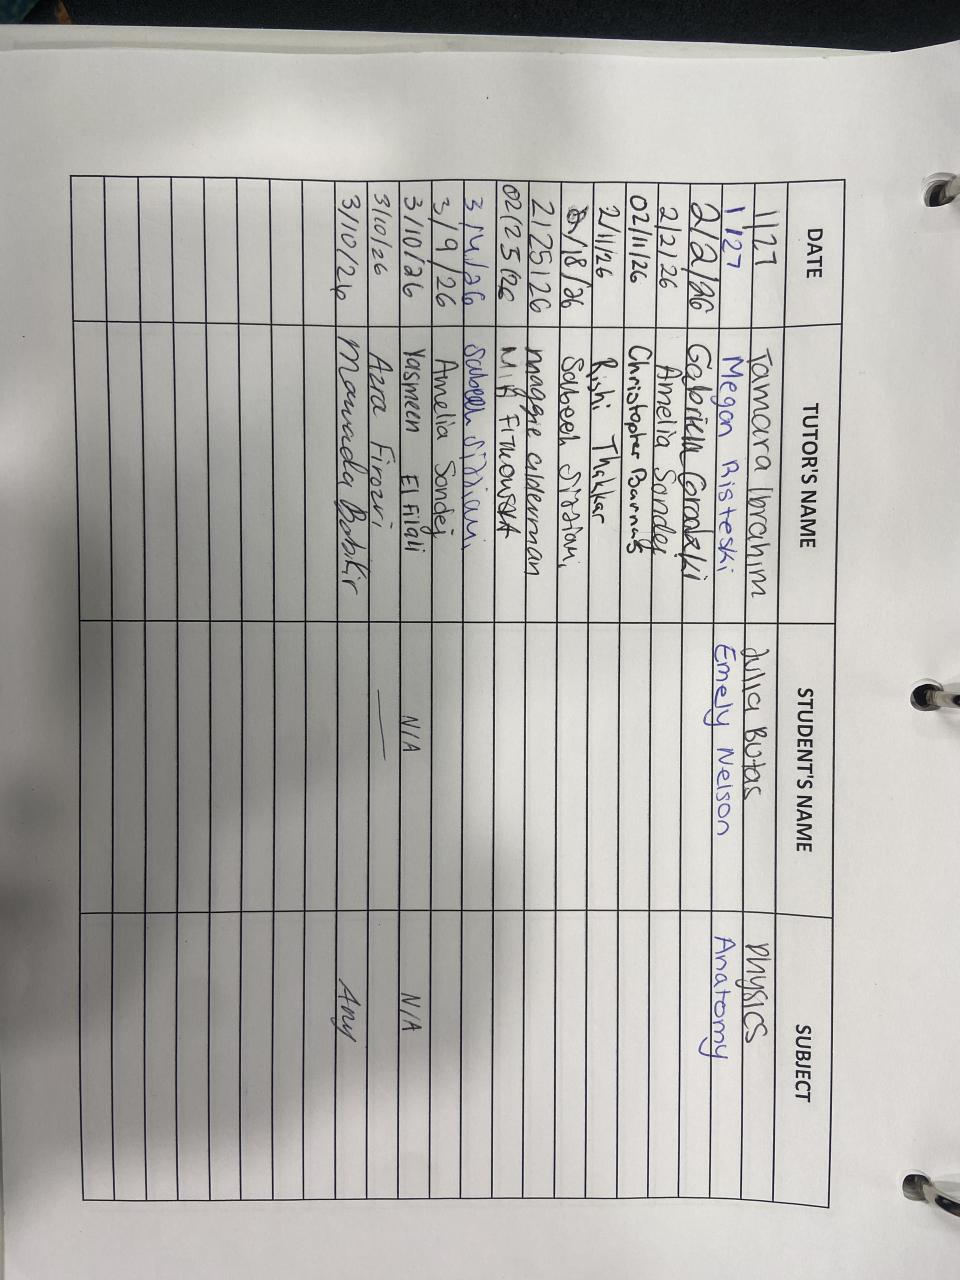 DATE TUTOR'S NAME STUDENT'S NAME SUBJECT
1/27 Tamara Ibrahim Julia Butas Physics
1/27 Megan Risteski Emely Nelson Anatomy
2/2/26 Gabriela
2/2/26 Amelia Sondej
02/11/26 Christopher
2/11/26 Rishi Thakkar
2/18/26 Sabeeh
2/25/26 maggie alderman
02/25/26
3/4/26 Sabeeh
3/9/26 Amelia Sondej
3/10/26 Yasmeen El Filali N/A N/A
3/10/26 Azra Firozvi
3/10/26 Mawada Babikir Any